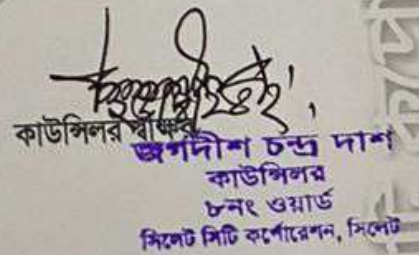 কাউন্সিলর স্বাক্ষর
জগদীশ চন্দ্র দাশ
কাউন্সিলর
৮নং ওয়ার্ড
সিলেট সিটি কর্পোরেশন, সিলেট